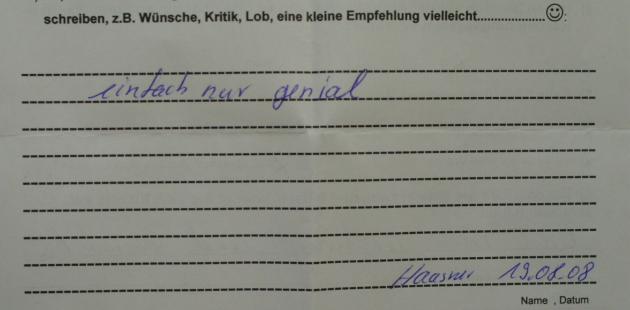 schreiben, z.B. Wünsche, Kritik, Lob, eine kleine Empfehlung vielleicht....................☺:
einfach nur genial
19.08.08
Name , Datum